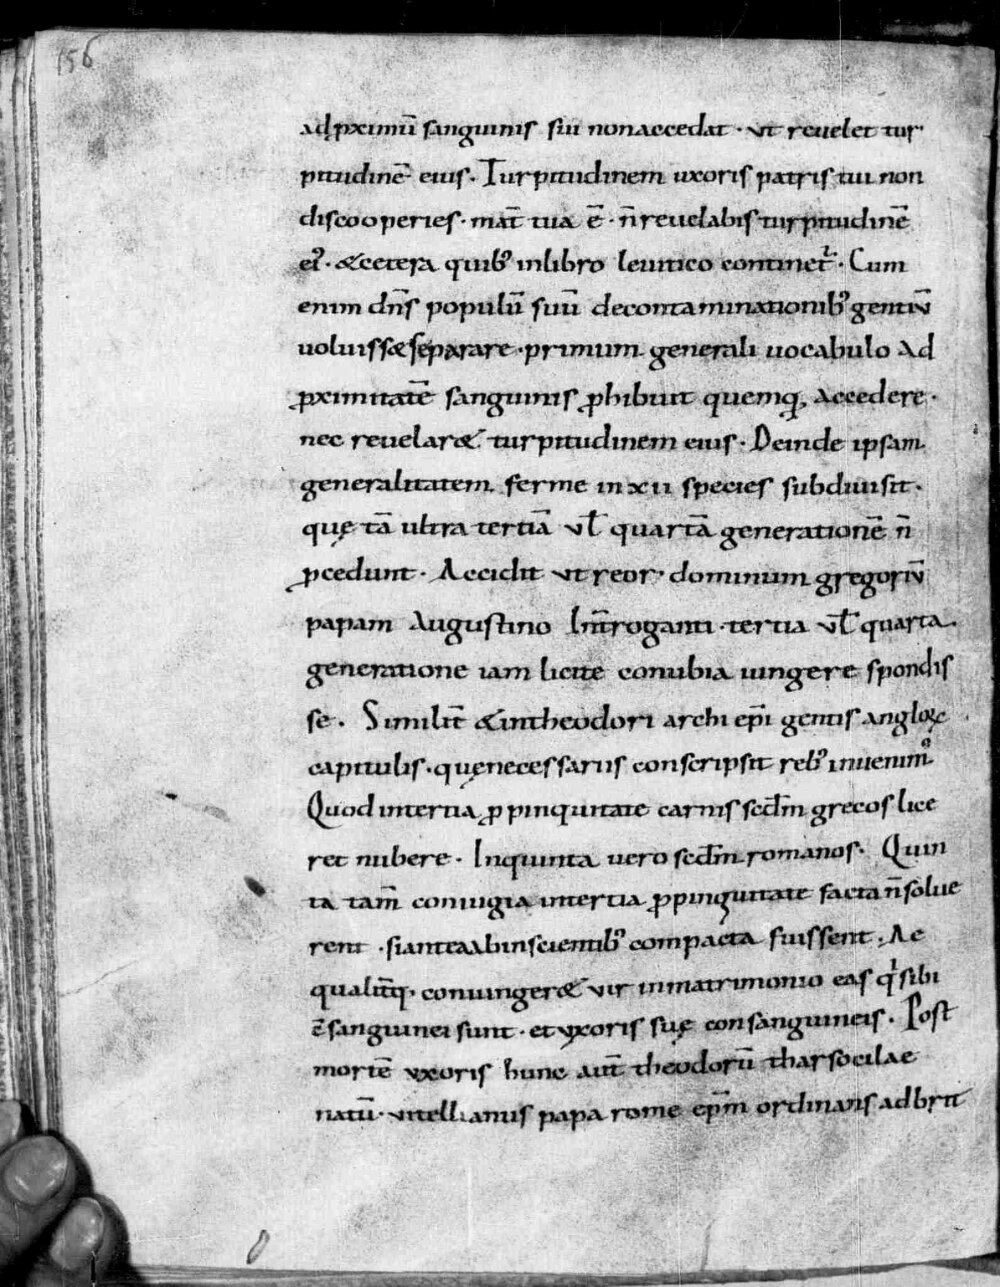 156
ad ꝓximũ sanguinis sui non accedat · ut reuelet tur
pitudinẽ eius. Turpitudinem uxoris patris tui non
discooperies · mat̃ tua ẽ · ñ reuelabis turpitudinẽ
ei᾽ · &cetera quib᾽ in libro leuitico continet᷑ · Cum
enim dñs populũ suũ de contaminationib᾽ gentiũ
uoluiss& separare · primum generali uocabulo ad
ꝓximitatẽ sanguinis ꝓhibuit quemq; accedere ·
nec reuelar& turpitudinem eius · Deinde ipsam
generalitatem ferme in xii species subdiuisit ·
quę tã ultra tertiã uƚ quartã generationẽ ñ
ꝓcedunt · Accidit ut reor · dominum gregoriũ
papam Augustino Int̃roganti · tertia uƚ quarta
generatione iam licite conubia iungere spondis
se . Similit̃ &in theodori archi ep̃i gentis angloꝝ
capitulis · quę necessariis conscripsit reb᾽ inuenim᾽
Quod in tertia ꝓpinquitate carnis scd̃m grecos lice
ret nubere · In quinta uero scd̃m romanos · Quin
ta tam̃ coniugia in tertia ꝓpinquitate facta ñ solue
rent · si antea ab inscientib᾽ compacta fuissent · Ae
qualit̃q; coniunger& uir in matrimonio eas q᷑ sibi
c̃sanguinei sunt · et uxoris suę consanguineis · Post
mortẽ uxoris hunc aut̃ theodorũ tharso cilae
natũ · uitellianus papa rome ep̃m ordinans ad brit